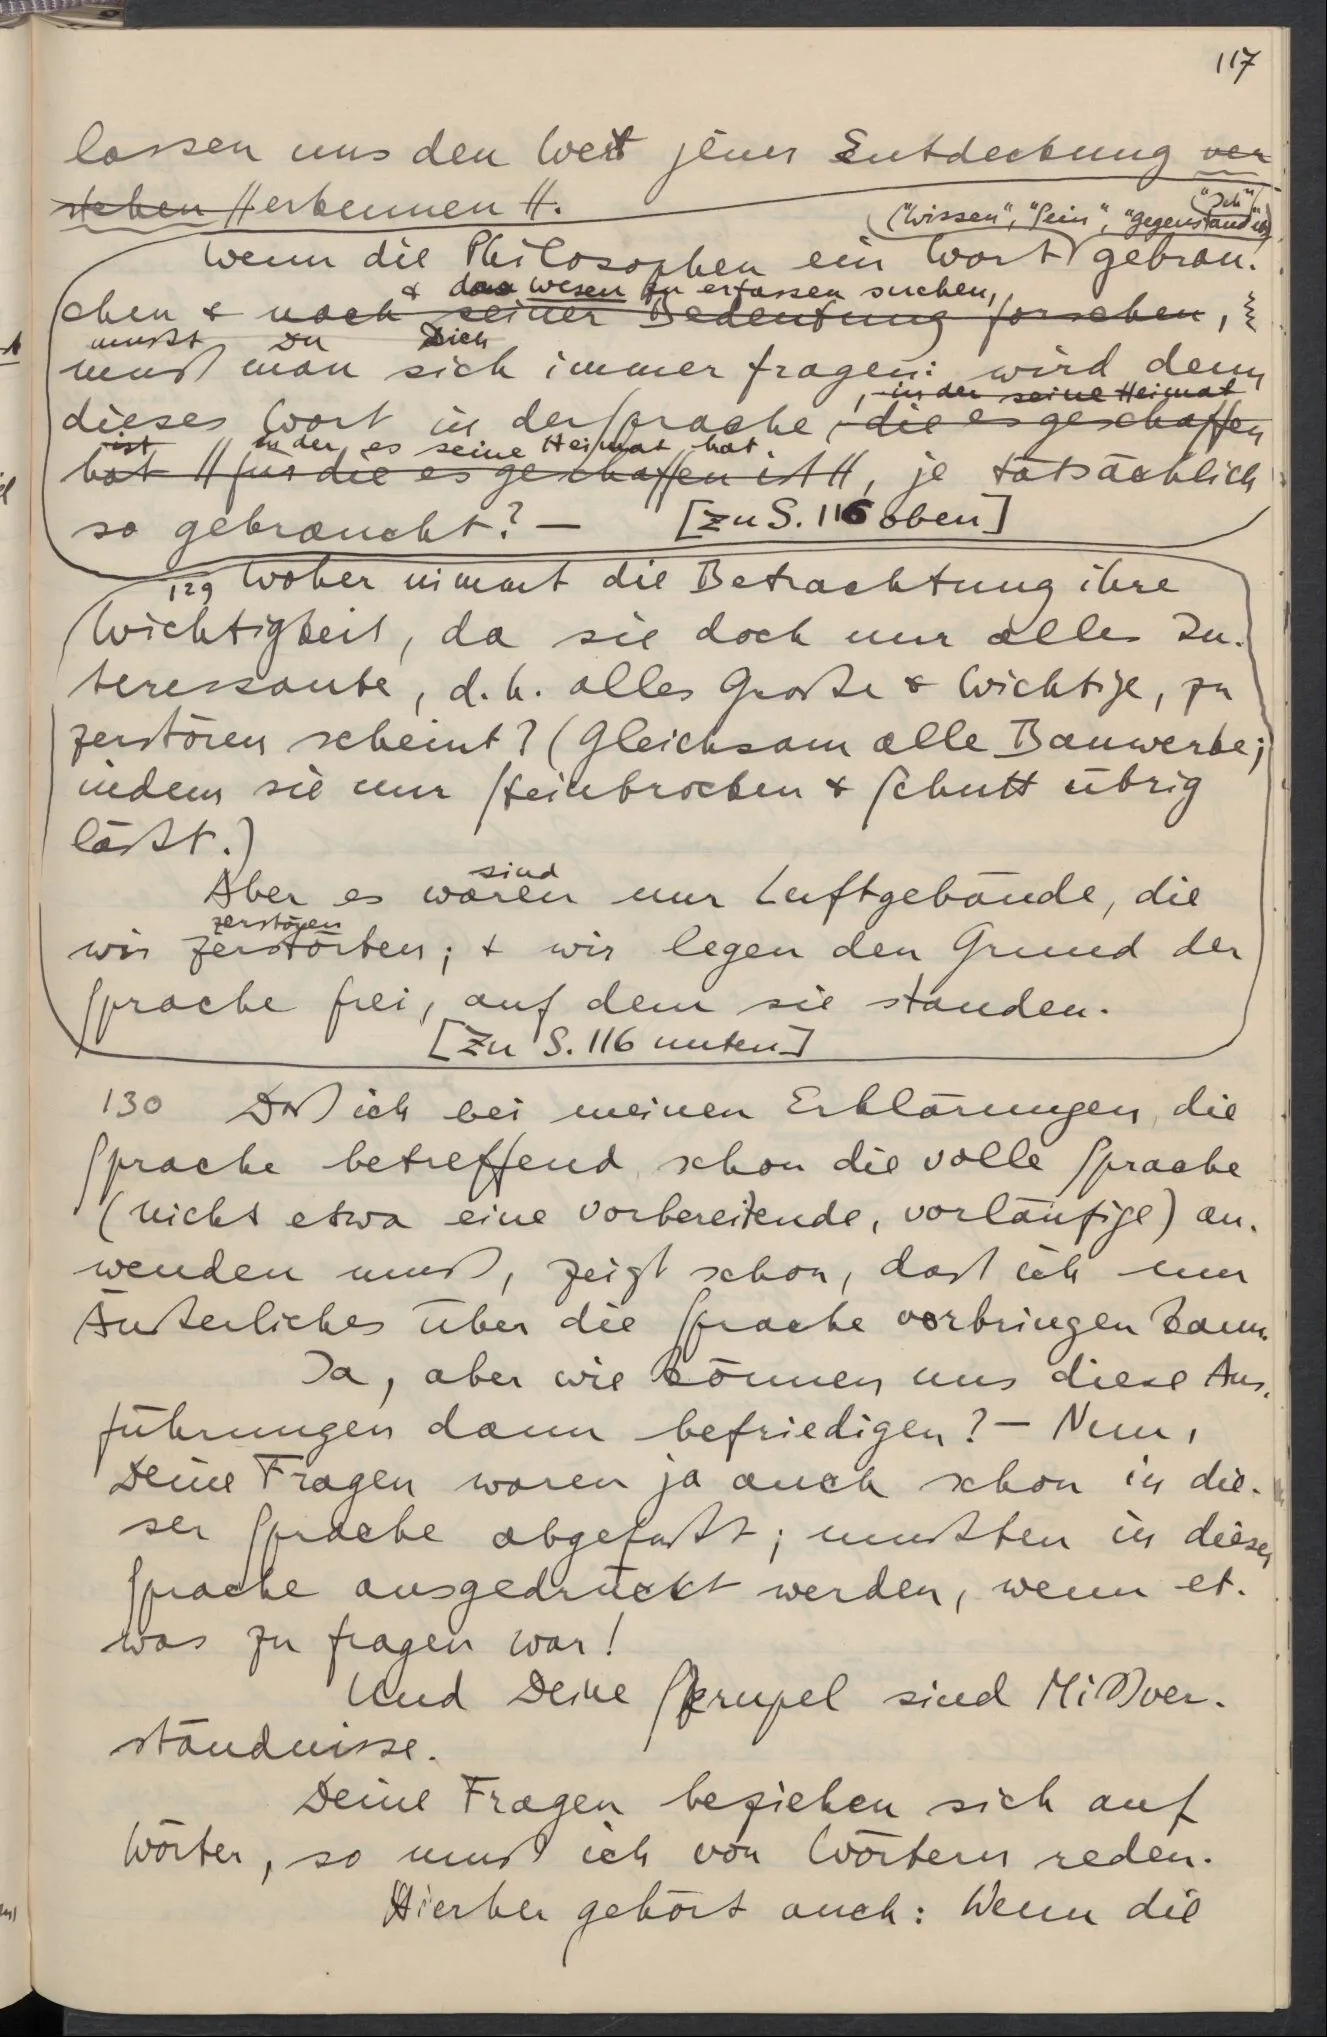 117
lassen uns den Wert jener Entdeckung ver
stehen // erkennen //.
"Ich"
("Wissen", "Sein", "Gegenstand"
Wenn die Philosophen ein Wort gebrau-
& das Wesen zu erfassen suchen,
chen & nach seiner Bedeutung forschen,
mußt Du Dich
muß man sich immer fragen: wird denn
, in der seine Heimat
dieses Wort in der Sprache, die es geschaffen
ist in der es seine Heimat hat
hat // für die es geschaffen ist //, je tatsächlich
so gebraucht? – [Zu S. 116 oben]
129 Woher nimmt die Betrachtung ihre
Wichtigkeit, da sie doch nur alles In-
teressante, d.h. alles Große & Wichtige, zu
zerstören scheint? (Gleichsam alle Bauwerke;
indem sie nur Steinbrocken & Schutt übrig
läßt.)
sind
Aber es waren nur Luftgebäude, die
zerstören
wir zerstörten; & wir legen den Grund der
Sprache frei, auf dem sie standen.
[Zu S. 116 unten]
130 Daß ich bei meinen Erklärungen, die
Sprache betreffend, schon die volle Sprache
(nicht etwa eine vorbereitende, vorläufige) an-
wenden muß, zeigt schon, daß ich nur
Äußerliches über die Sprache vorbringen kann.
Ja, aber wie können uns diese Aus-
führungen dann befriedigen? – Nun,
Deine Fragen waren ja auch schon in die-
ser Sprache abgefaßt; mußten in dieser
Sprache ausgedrückt werden, wenn et-
was zu fragen war!
Und Deine Skrupel sind Mißver-
ständnisse.
Deine Fragen beziehen sich auf
Wörter, so muß ich von Wörtern reden.
Hierher gehört auch: Wenn die